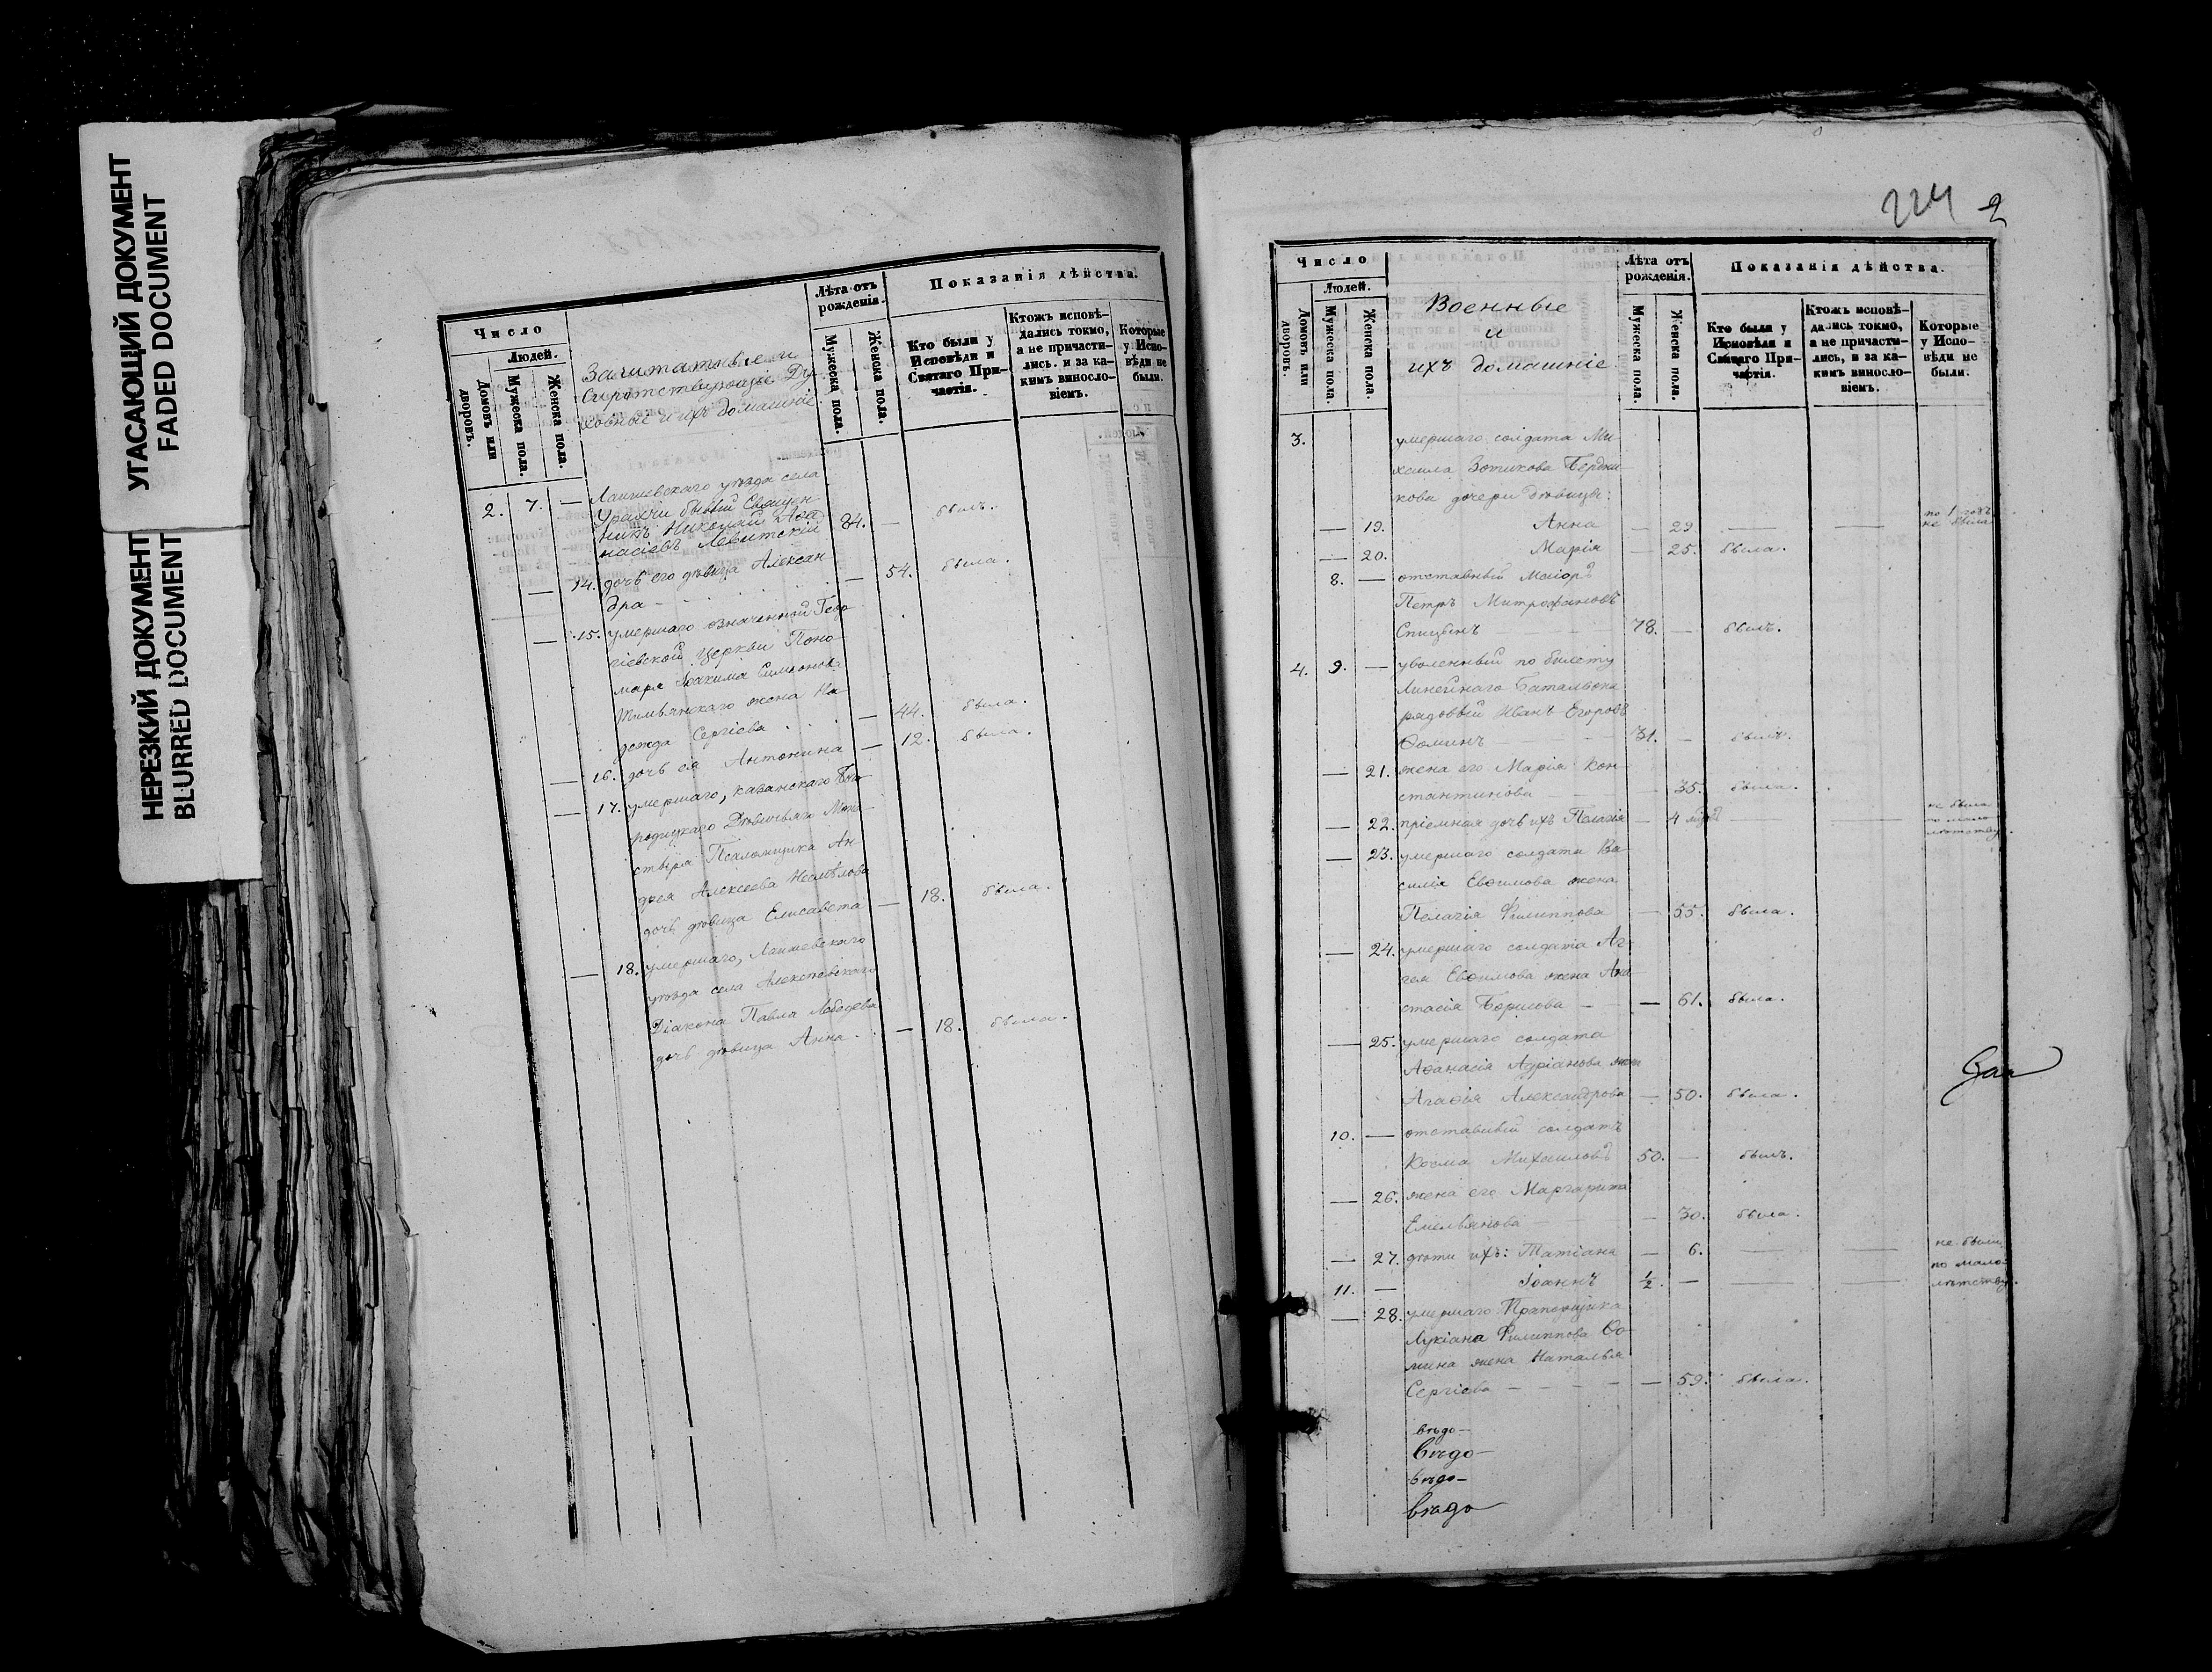 УГАСАЮЩИЙ ДОКУМЕНТ
FADED DOCUMENT
НЕРЕЗКИЙ ДОКУМЕНТ
BLURRED DOCUMENT
Число
Людей.
Домовъ или дворовъ.
Мужеска пола.
Женска пола.
Заштатные и
Сиротствующіе Ду-
ховные и ихъ домашніе
Лѣта отъ рожденія.
Мужеска пола.
Женска пола.
Показанія дѣйства.
Кто были у Исповѣди и Святаго Причастія.
Ктожъ исповѣдались токмо, а не причастились, и за какимъ винословіемъ.
Которые у Исповѣди не были.
2. 7. — Лаишевскаго уѣзда села
бывый Священ
никъ Николай Аѳа
насіевъ Левитскій 84. — былъ.
— 14. дочь его дѣвица Алексан
дра — — 54. была.
— 15. умершаго означенной Геор
гіевской церкви Поно-
маря Іоакима Симеонова
жена На
дежда Сергіева — 44. была.
— 16. дочь ея Антонина — 12. была.
— 17. умершаго, Казанскаго Бого
родицкаго Дѣвичьяго Мона-
стыря Псаломщика Ан
дрея Алексеева Несмѣлова
дочь дѣвица Елисавета — 18. была.
— 18. умершаго, Лаишевскаго
уѣзда села Алексѣевскаго
Діакона Павла Лебедева
дочь дѣвица Анна. — 18. была.
224 2
Число
Людей.
Домовъ или дворовъ.
Мужеска пола.
Женска пола.
Военные
и
ихъ домашніе.
Лѣта отъ рожденія.
Мужеска пола.
Женска пола.
Показанія дѣйства.
Кто были у Исповѣди и Святаго Причастія.
Ктожъ исповѣдались токмо, а не причастились, и за какимъ винословіемъ.
Которые у Исповѣди не были.
3. умершаго солдата Ми-
хаила Зотикова Бердни-
кова дочери дѣвицы:
— 19. Анна — 29. — — не была
— 20. Марія — 25. была.
8. — отставный Маіоръ
Петръ Митрофановъ
Спицынъ 78. — былъ.
4. 9. — уволенный по билету
Линейнаго Батальона
рядовый Иванъ Егоровъ
Ѳоминъ 31. — былъ.
— 21. жена его Марія Кон-
стантинова — 35. была.
— 22. пріемная дочь ихъ Пелагія — 4 — — не была
по мало
лѣтству.
— 23. умершаго солдата Ва-
силія Евѳимова жена
Пелагія Филиппова — 55. была.
— 24. умершаго солдата Аг-
гея Евѳимова жена Ана-
стасія Борисова — — 61. была.
— 25. умершаго солдата
Аѳанасія Адріанова жена
Агаѳія Александрова — 50. была.
10. — отставный солдатъ
Косма Михаиловъ 50. — былъ.
— 26. жена его Маргарита
Емельянова — 30. была.
— 27. дѣти ихъ: Татіана — 6. — — не были
по мало-
11. — Іоаннъ ½. — — — лѣтству.
— 28. умершаго Прапорщика
Лукіана Филиппова Ѳо-
мина жена Наталья
Сергіева — — 59. была.
вѣдо—
вѣдо—
вѣдо—
вѣдо